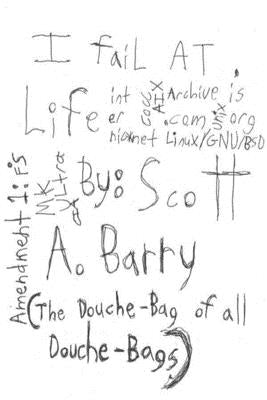 I faiL AT.
Life
int er net
GCC
AIX
Archive.is
.com
Unix
org
Linux/GNU/BSD
Amendment 1: FS
MK
Ultra
By: Scott
A. Barry
(The Douche-Bag of all
Douche-Bags)